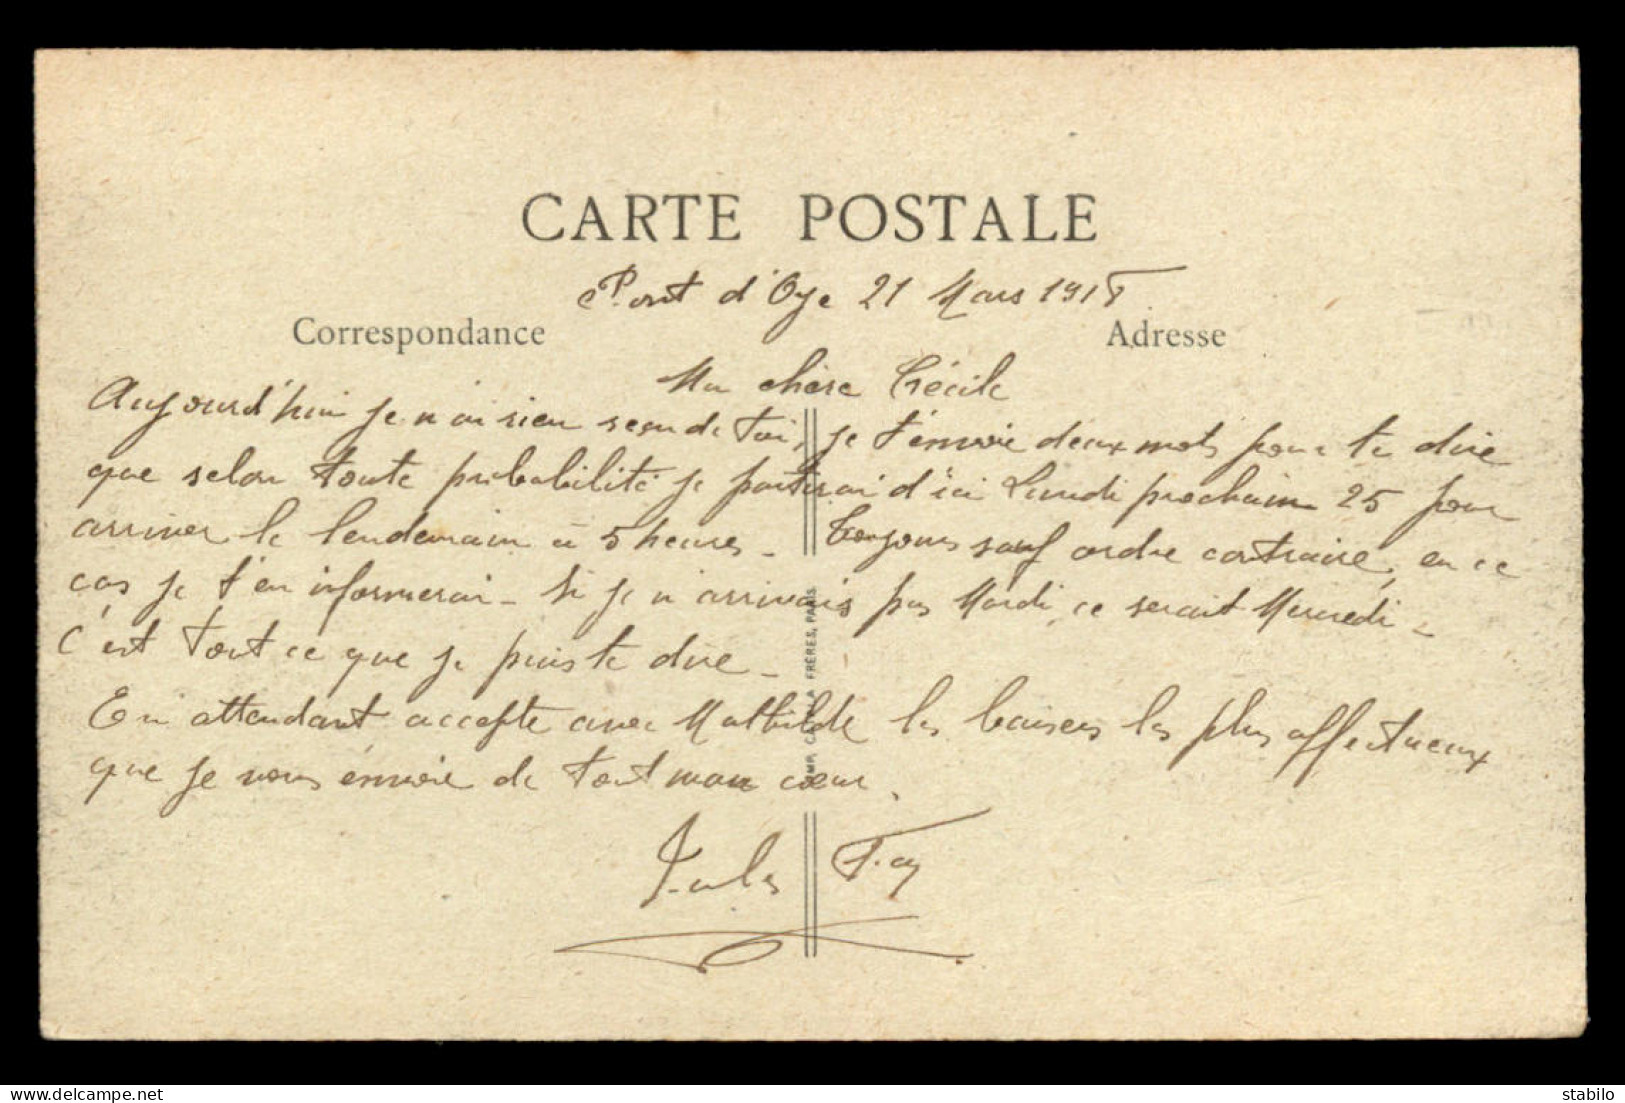 CARTE POSTALE
Pont d'Oye 21 Mars 1918
Correspondance
Adresse
Ma chère Cécile
Aujourd'hui je n'ai rien reçu de toi, je t'envoie deux mots pour te dire
que selon toute probabilité je partirai d'ici Lundi prochain 25 pour
arriver le lendemain à 5 heures - Toujours sauf ordre contraire, en ce
cas je t'en informerai - Si je n'arrivais pas Mardi, ce serait Mercredi -
C'est tout ce que je puis te dire -
En attendant accepte avec Mathilde les baisers les plus affectueux
que je vous envoie de tout mon cœur.
Jules
IMP. CATALA FRÈRES, PARIS
stabilo